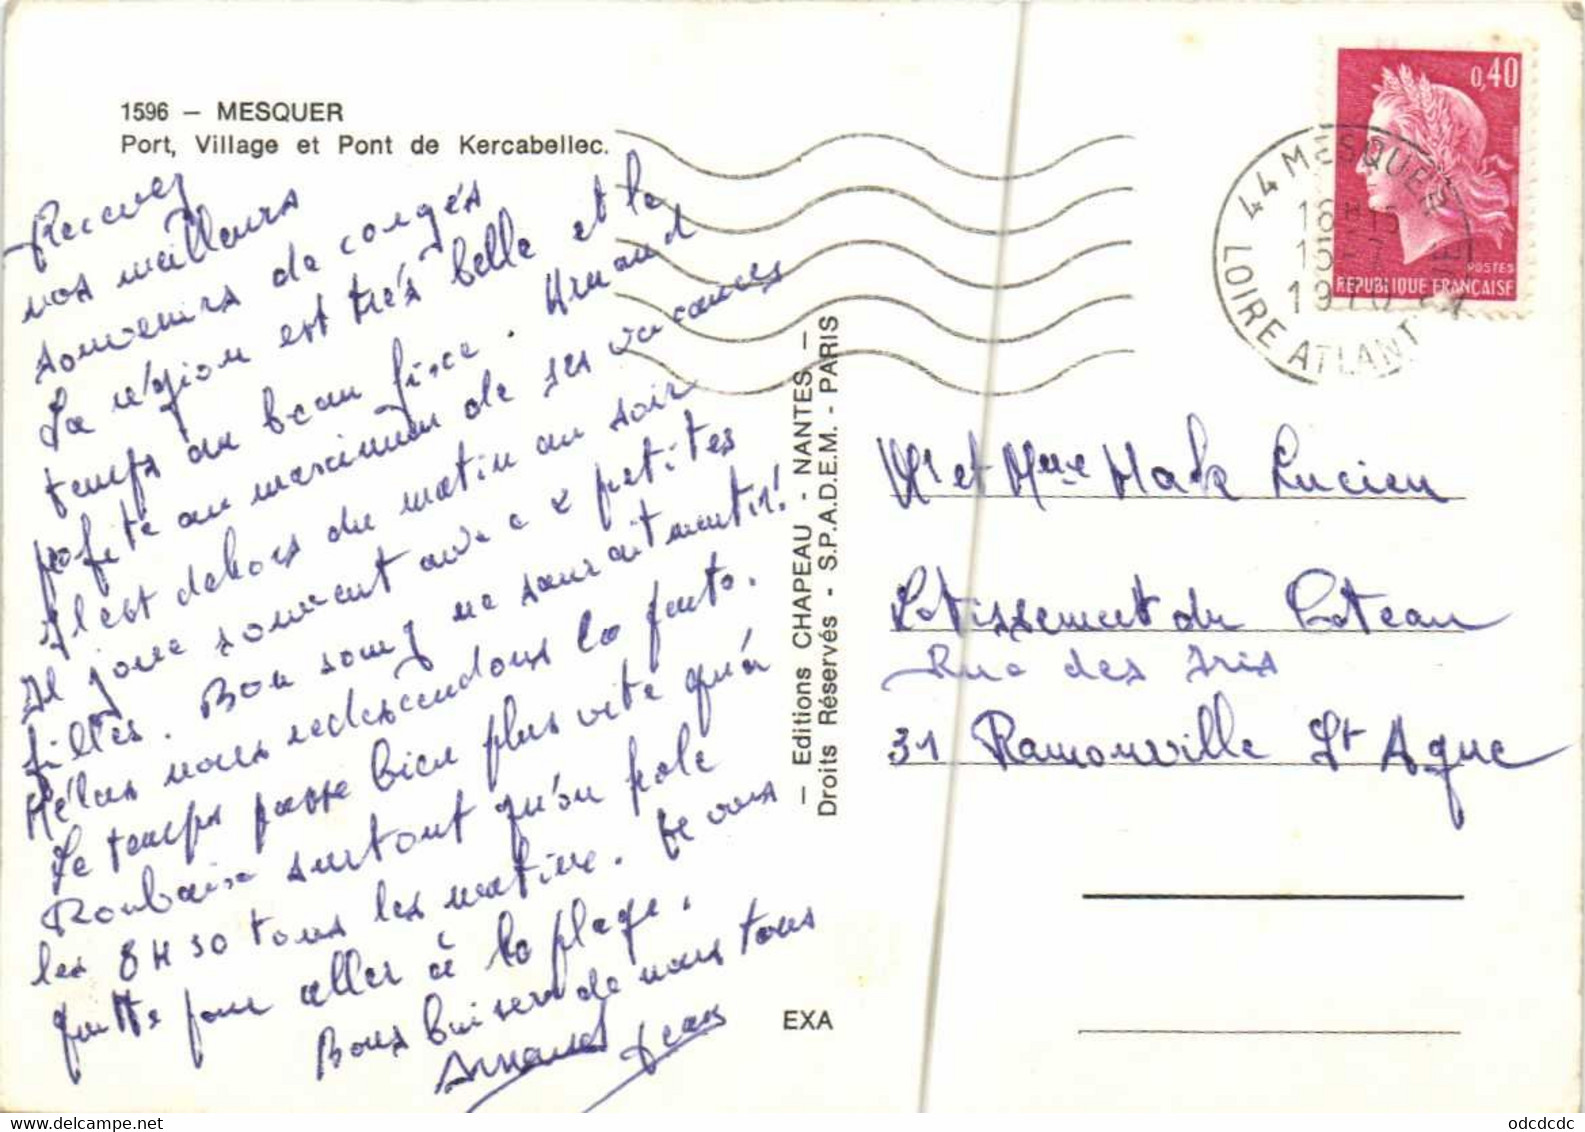 1596 – MESQUER
Port, Village et Pont de Kercabellec.
Recevez
nos meilleurs
souvenirs de congés
La région est très belle et le
temps au beau fixe. Arnaud
pofite au maximum de ses vacances
Il est dehors du matin au soir
Il joue souvent avec 2 petites
filles. Bon sang ne saurait mentir!
Hélas nous redescendons la pente.
Le temps passe bien plus vite qu'à
Roubaix surtout qu'on
les 8H30 tous les matins. Je vous
quitte pour aller à la plage.
Bons baisers de nous tous
Arnaud Jean
— Editions CHAPEAU - NANTES —
Droits Réservés - S.P.A.D.E.M. - PARIS
EXA
0,40
POSTES
REPUBLIQUE FRANÇAISE
44 MESQUER
18H15
15-7
1970
LOIRE ATLANTIQUE
Mr et Mme Lucien
Lotissement du Coteau
Rue des Iris
31 Ramonville St Agne
www.delcampe.net
odcdcdc